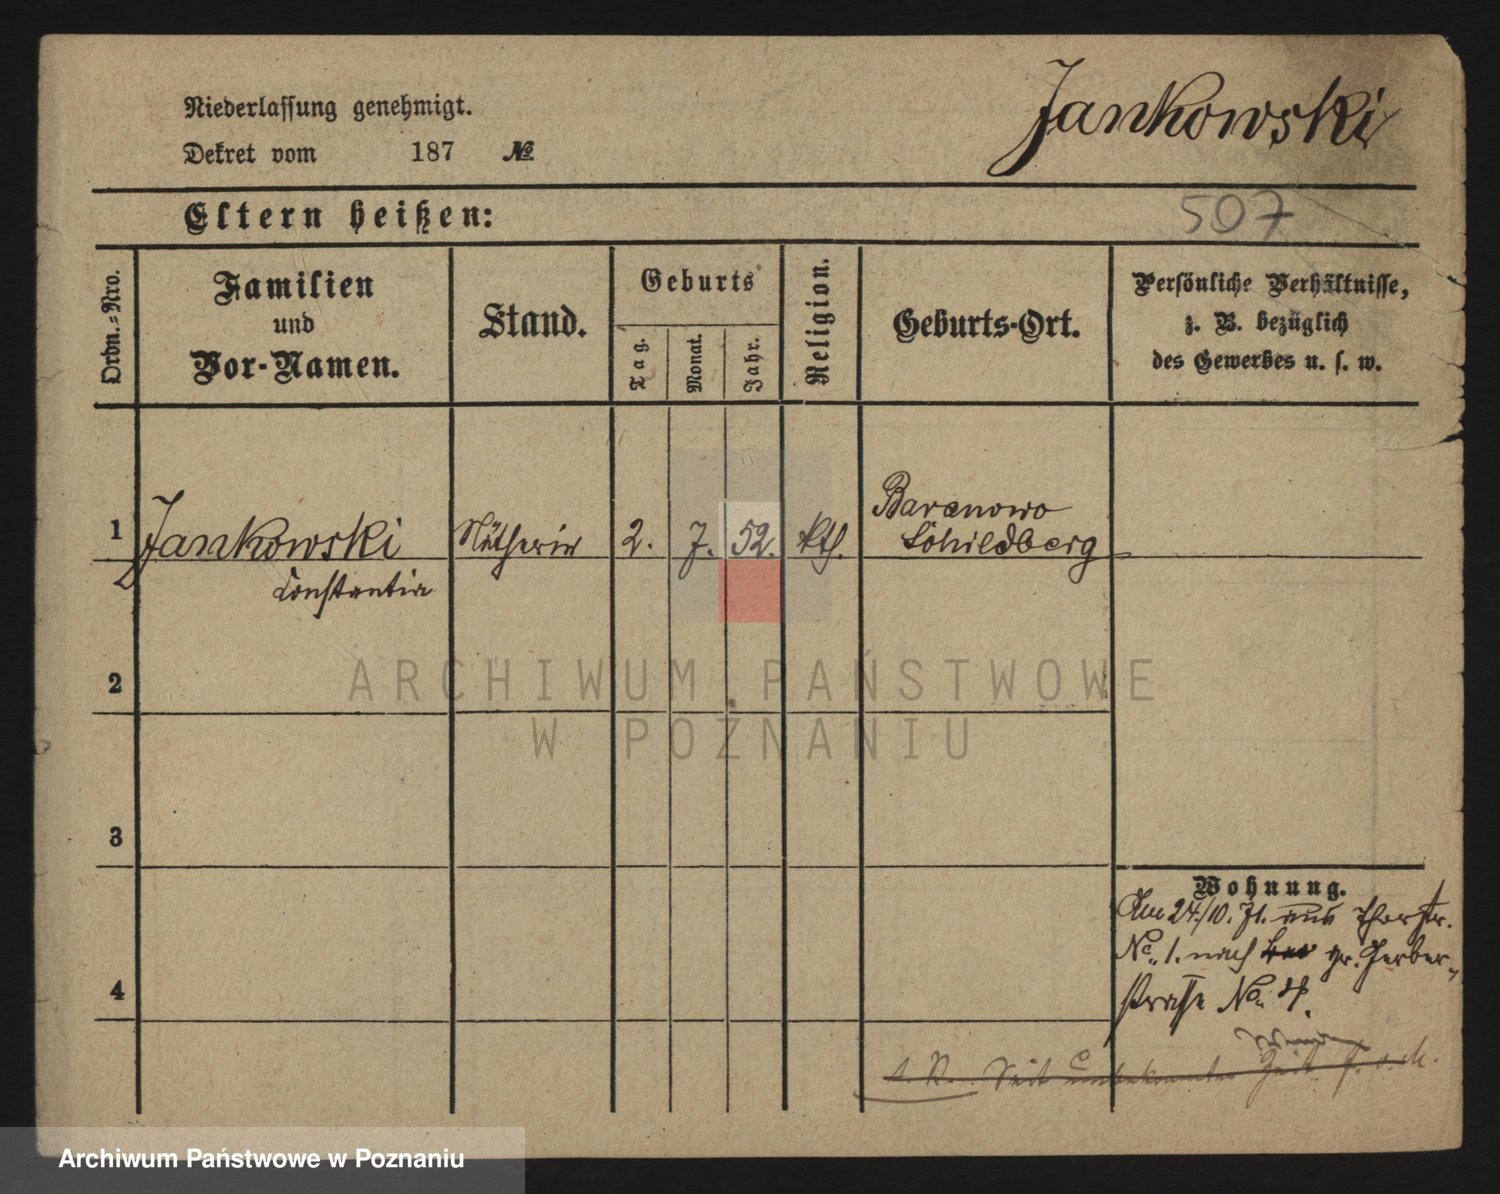 Jankowski
Niederlassung genehmigt.
Dekret vom 187 №
507
Eltern heißen:
Ordn.-Nro.
Familien
und
Vor-Namen.
Stand.
Geburts
Tag.
Monat.
Jahr.
Religion.
Geburts-Ort.
Persönliche Verhältnisse,
z. B. bezüglich
des Gewerbes u. s. w.
1 Jankowski Nätherin 2. 7. 52. kth. Baranowo
Schildberg
Constantia
2
3
4
Wohnung.
Am 24/10. 71. aus Thorstr.
No. 1. nach gr. Gerber-
straße No. 4.
Seit unbekannter Zeit
ARCHIWUM PAŃSTWOWE
W POZNANIU
Archiwum Państwowe w Poznaniu